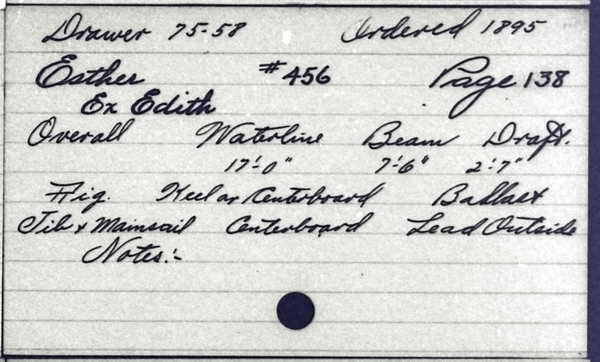 Drawer 75-58 Ordered 1895
Esther #456 Page 138
Ex Edith
Overall Waterline Beam Draft.
17'-0" 7'-6" 2'-7"
Rig. Keel or Centerboard Ballast
Jib & Mainsail Centerboard Lead Outside
Notes:-